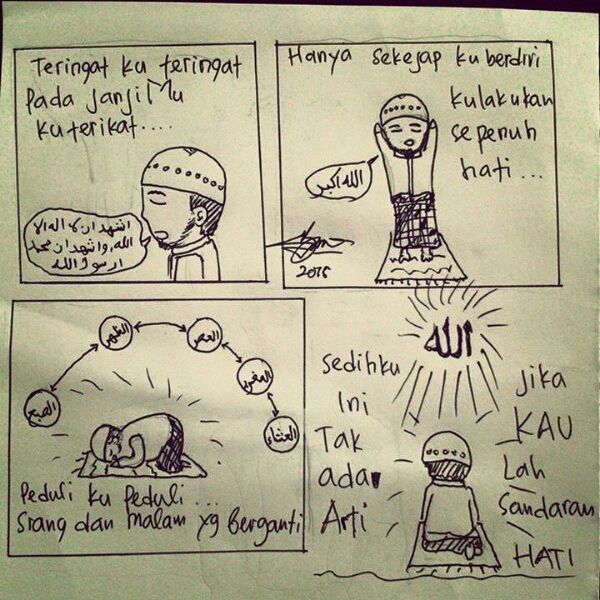 Teringat ku teringat
Pada janjiMu
ku terikat....
اشهد ان لا اله الا
الله، واشهد ان محمد
ا رسول الله
Hanya sekejap ku berdiri
kulakukan
sepenuh
hati...
الله اكبر
2015
الصبح
الظهر
العصر
المغرب
العشاء
Peduli ku Peduli...
Siang dan malam yg Berganti
الله
sedihku
ini
Tak
ada
Arti
Jika
KAU
Lah
Sandaran
HATI